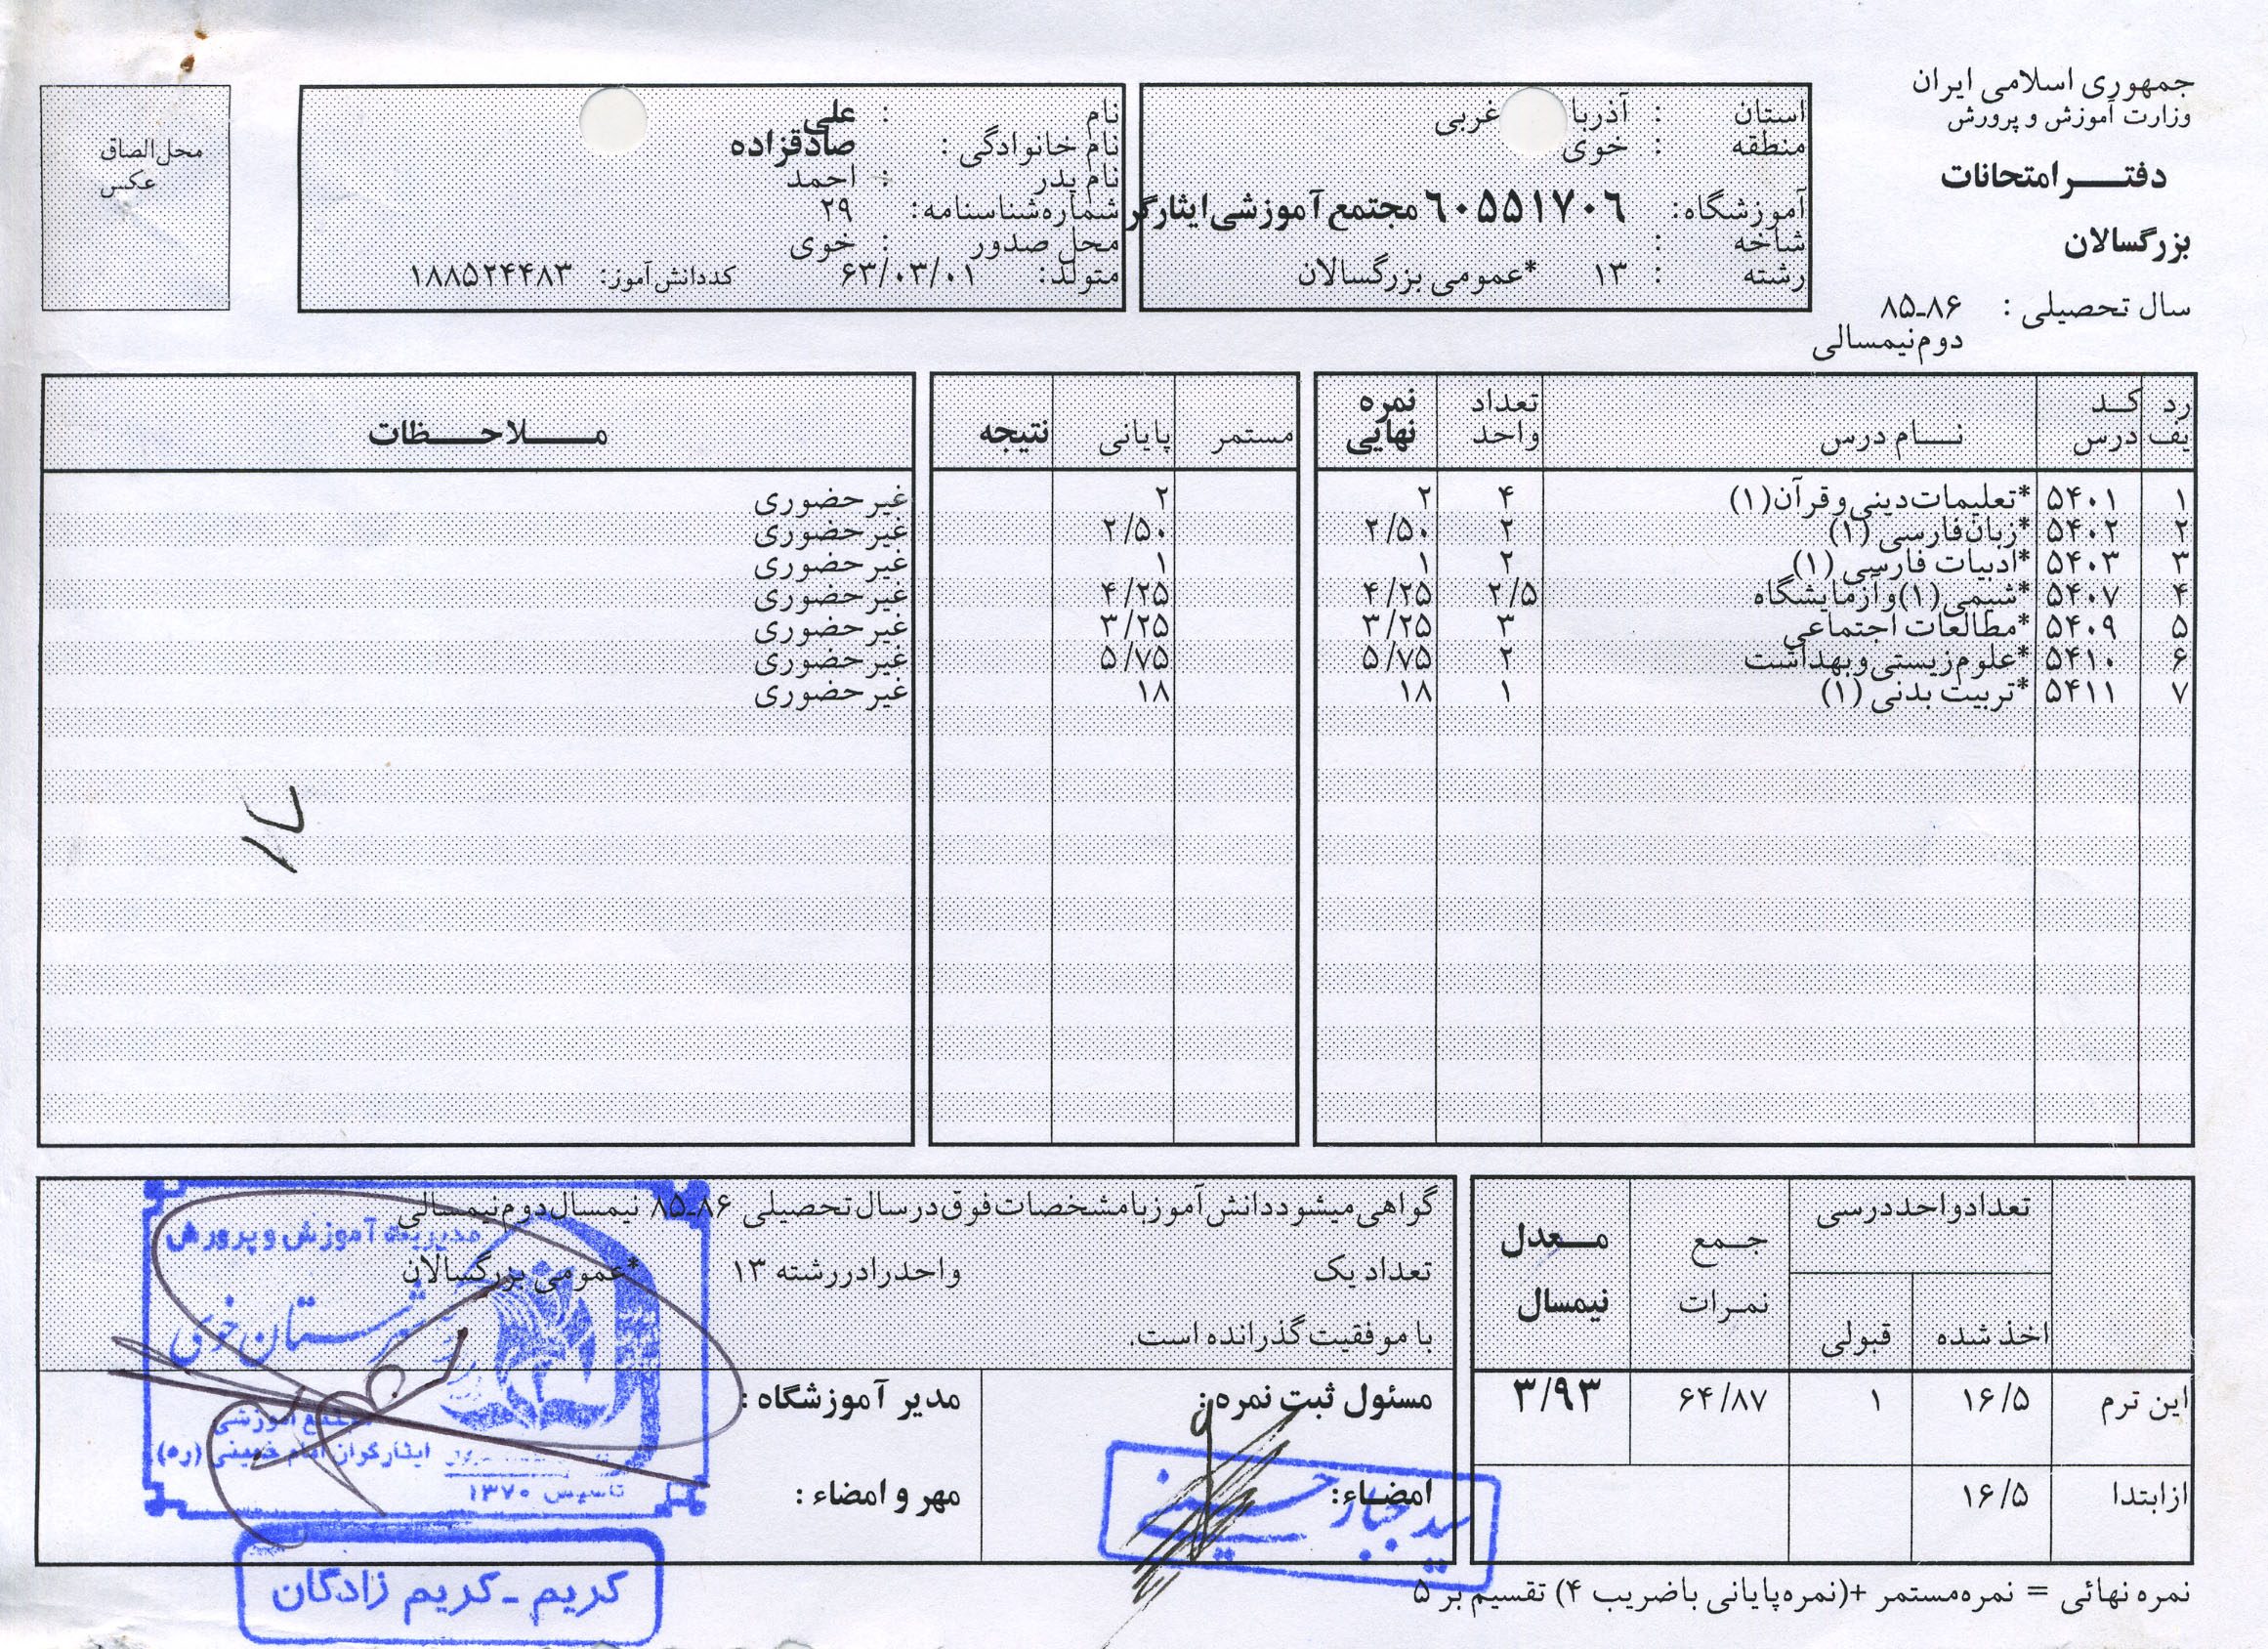 جمهوری اسلامی ایران
وزارت آموزش و پرورش
دفتر امتحانات
بزرگسالان
سال تحصیلی : ۸۵ـ۸۶
دوم نیمسالی
استان : آذربا غربی
منطقه : خوی
آموزشگاه: ۶۰۵۵۱۷۰۶ مجتمع آموزشی ایثارگر
شاخه :
رشته : ۱۳ *عمومی بزرگسالان
نام : علی
نام خانوادگی : صادقزاده
نام پدر : احمد
شماره شناسنامه: ۲۹
محل صدور : خوی
متولد: ۶۳/۰۳/۰۱ کد دانش آموز: ۱۸۸۵۲۴۴۸۳
محل الصاق
عکس
ردیف کد درس نام درس تعداد واحد نمره نهایی مستمر پایانی نتیجه ملاحظات
۱ ۵۴۰۱ *تعلیمات دینی و قرآن (۱) ۴ ۲ ۲ غیر حضوری
۲ ۵۴۰۲ *زبان فارسی (۱) ۲ ۲/۵۰ ۲/۵۰ غیر حضوری
۳ ۵۴۰۳ *ادبیات فارسی (۱) ۲ ۱ ۱ غیر حضوری
۴ ۵۴۰۷ *شیمی (۱) و آزمایشگاه ۲/۵ ۴/۲۵ ۴/۲۵ غیر حضوری
۵ ۵۴۰۹ *مطالعات اجتماعی ۳ ۳/۲۵ ۳/۲۵ غیر حضوری
۶ ۵۴۱۰ *علوم زیستی و بهداشت ۲ ۵/۷۵ ۵/۷۵ غیر حضوری
۷ ۵۴۱۱ *تربیت بدنی (۱) ۱ ۱۸ ۱۸ غیر حضوری
تعداد واحد درسی جمع نمرات معدل نیمسال
اخذ شده قبولی
این ترم ۱۶/۵ ۱ ۶۴/۸۷ ۳/۹۳
از ابتدا ۱۶/۵
گواهی میشود دانش آموز با مشخصات فوق در سال تحصیلی ۸۵ـ۸۶ نیمسال دوم نیمسالی
تعداد یک واحد را در رشته ۱۳ *عمومی بزرگسالان
با موفقیت گذرانده است.
مسئول ثبت نمره:
امضاء:
سید جبار حسینی
مدیر آموزشگاه :
مهر و امضاء :
مدیریت آموزش و پرورش
شهرستان خوی
مجتمع آموزشی
ایثارگران امام خمینی (ره)
تاسیس ۱۳۷۰
کریم ـ کریم زادگان
نمره نهائی = نمره مستمر +(نمره پایانی با ضریب ۴) تقسیم بر ۵